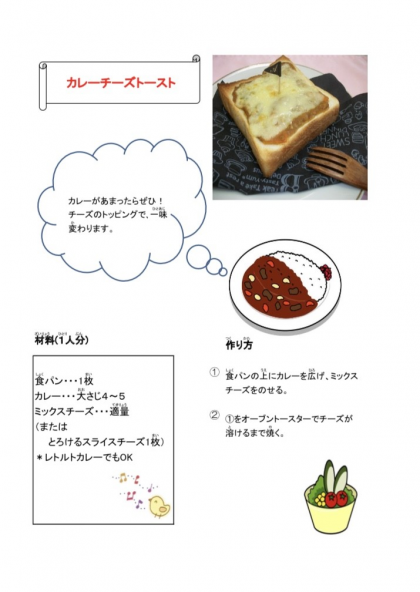 カレーチーズトースト
カレーがあまったらぜひ！
チーズのトッピングで、一味
変わります。
材料(1人分)
食パン・・・1枚
カレー・・・大さじ４～５
ミックスチーズ・・・適量
(または
とろけるスライスチーズ1枚)
＊レトルトカレーでもOK
作り方
① 食パンの上にカレーを広げ、ミックス
チーズをのせる。
② ①をオーブントースターでチーズが
溶けるまで焼く。